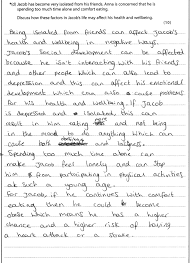 Jacob has become very isolated from his friends. Anna is concerned that he is
spending too much time alone and comfort eating.
Discuss how these factors in Jacob's life may affect his health and wellbeing.
(10)
Being isolated from friends can affect Jacob's
health and wellbeing in negative ways.
Jacob's social development can be affected
because he isn't interacting with his friends
and other people which can also lead to
depression and this can affect his emotional
development which can also cause problems
for his health and wellbeing. If Jacob
is depressed and isolated, this can
result in him eating and not being
in the mood to do anything which can
cause both and
Spending too much time alone can
make Jacob feel lonely and can stop
him from participating in physical activities
at such a young age.
For Jacob if he continues with comfort
eating then he could become
obese which means he has a higher
chance and a higher risk of having
a heart attack or a stroke.